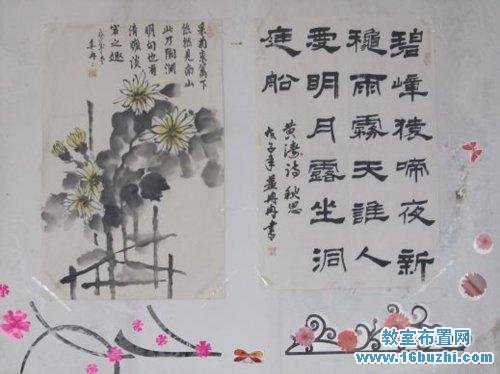 采菊东篱下
悠然見南山
此乃陶渊
明句也有
清雅淡
之趣
碧嶂猿啼夜新
穐雨霧天誰人
愛明月露坐洞
庭船
黄滔诗秋思
戊子年冉冉書
教室布置网
www.16buzhi.com